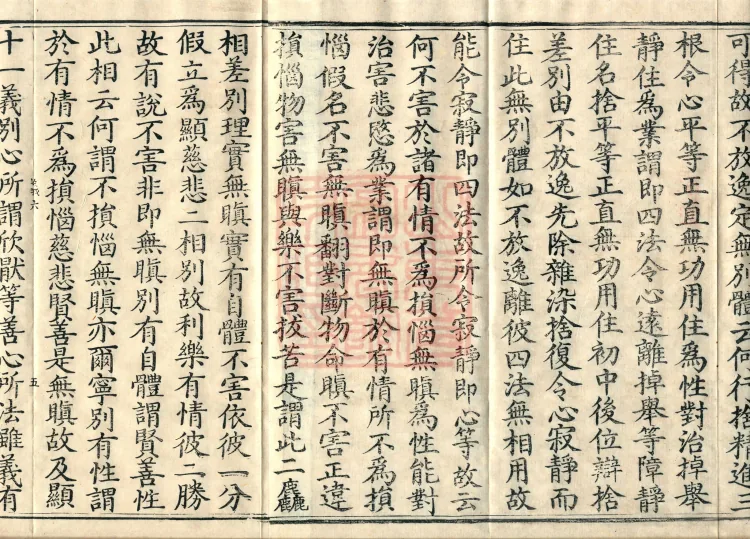 可得故不放逸定無別體云何行捨精進三
根令心平等正直無功用住爲性對治掉舉
靜住爲業謂即四法令心遠離掉舉等障靜
住名捨平等正直無功用住初中後位辯捨
差別由不放逸先除雜染捨復令心寂靜而
住此無別體如不放逸離彼四法無相用故
能令寂靜即四法故所令寂靜即心等故云
何不害於諸有情不爲損惱無瞋爲性能對
治害悲愍爲業謂即無瞋於有情所不爲損
惱假名不害無瞋翻對斷物命瞋不害正違
損惱物害無瞋與樂不害拔苦是謂此二麤
相差別理實無瞋實有自體不害依彼一分
假立爲顯慈悲二相別故利樂有情彼二勝
故有說不害非即無瞋別有自體謂賢善性
此相云何謂不損惱無瞋亦爾寧別有性謂
於有情不爲損惱慈悲賢善是無瞋故及顯
六
五
十一義別心所謂欣厭等善心所法雖義有